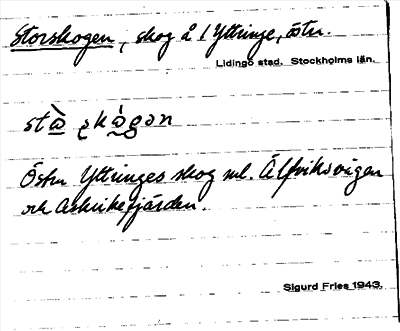 Storskogen, skog å 1 Yttringe, östr.
Lidingö stad. Stockholms län.
Östra Yttringes skog ml. Älfviksvägen
och Askrikefjärden.
Sigurd Fries 1943.